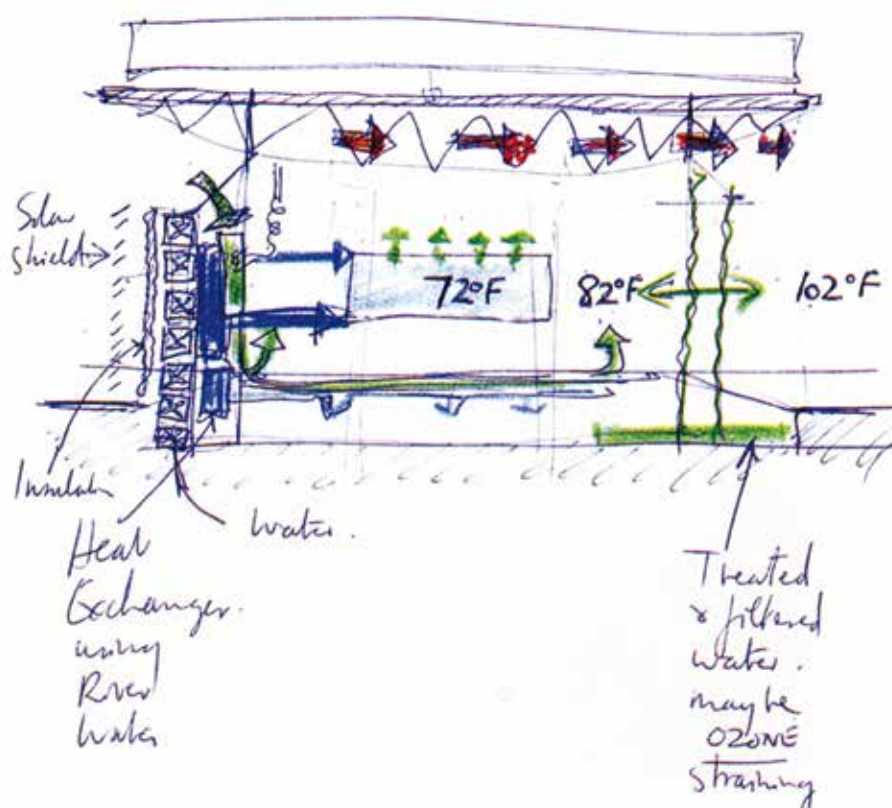 Solar
shield
72°F
82°F
102°F
Insulation
water.
Heat
Exchanger.
using
River
water
Treated
& filtered
water.
maybe
OZONE